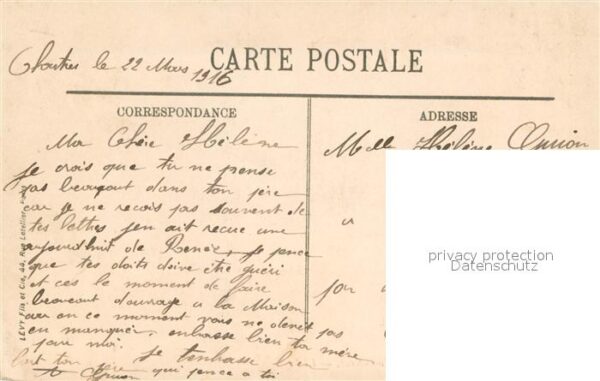 Chartres le 22 Mars 1916
CARTE POSTALE
CORRESPONDANCE
ADRESSE
Ma Chére Hélène
Je crois que tu ne pense
pas beaucoup dans ton père
car je ne recois pas souvent de
tes lettres jen ait recue une
aujourdhuit de Renée, je pence
que tes doits doive être guéri
et ces le moment de faire
beaucout douvrage a la Maison
car en ce moment vous ne devêt pas
en manquér. embrasse bien ta mère
pour moi. Je tenbrasse bien
fort ton père qui pence a toi
Melle Hélène
LEVY Fils et Cie, 44, Rue Letellier,
privacy protection
Datenschutz